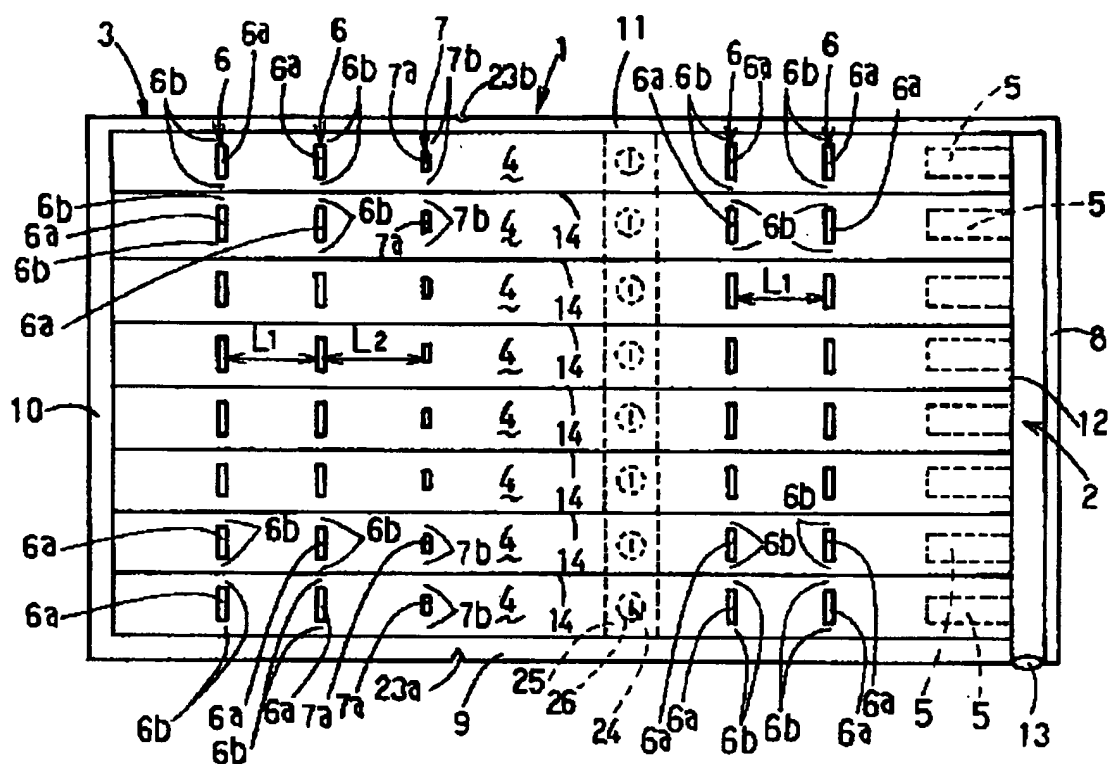 3 6b 6 6a 6a 6 6b 7a 7 7b 23b 1 11 6a 6b 6 6a 6b 6 6a 6a 5
4
6b 6a 6b 6b 7a 7b 4 14 6a 6b 6a 5
6a 4 14 L1
L1 L2 4 14 8
10 4 14 12
4 14 2
6a 6b 6b 7a 7b 4 14 6a 6b 6b 6a 5
6a 7b 4 14 5
6b 6b 6a 6b 6a 7a 7a 23a 9 25 26 24 6a 6a 6b 6b 6a 6a 5 5 13